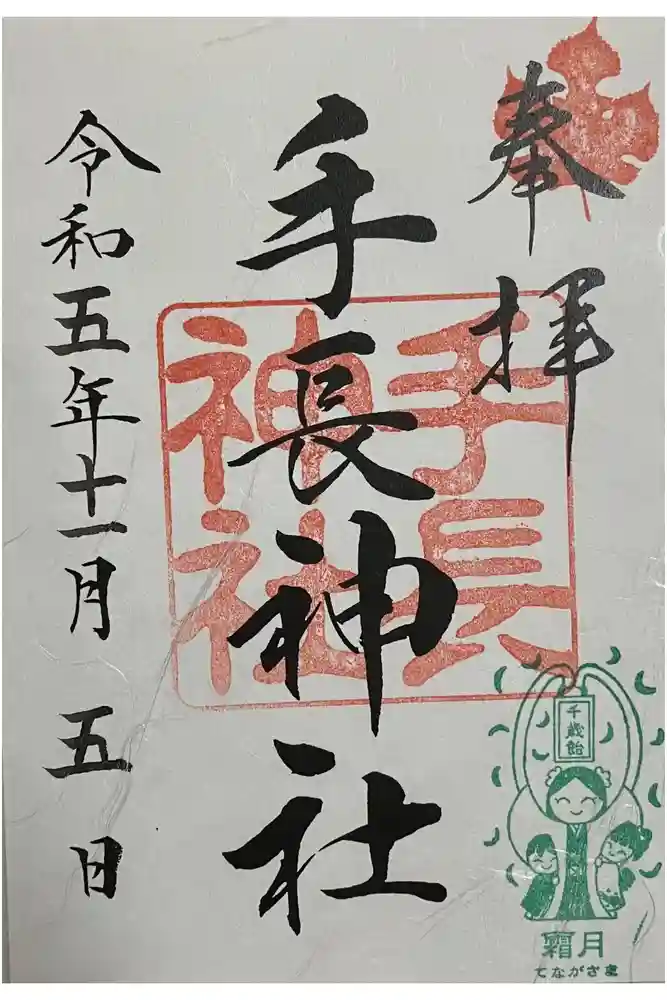 奉拝
手長神社
手長神社
令和五年十一月五日
千歳飴
霜月
てながさま